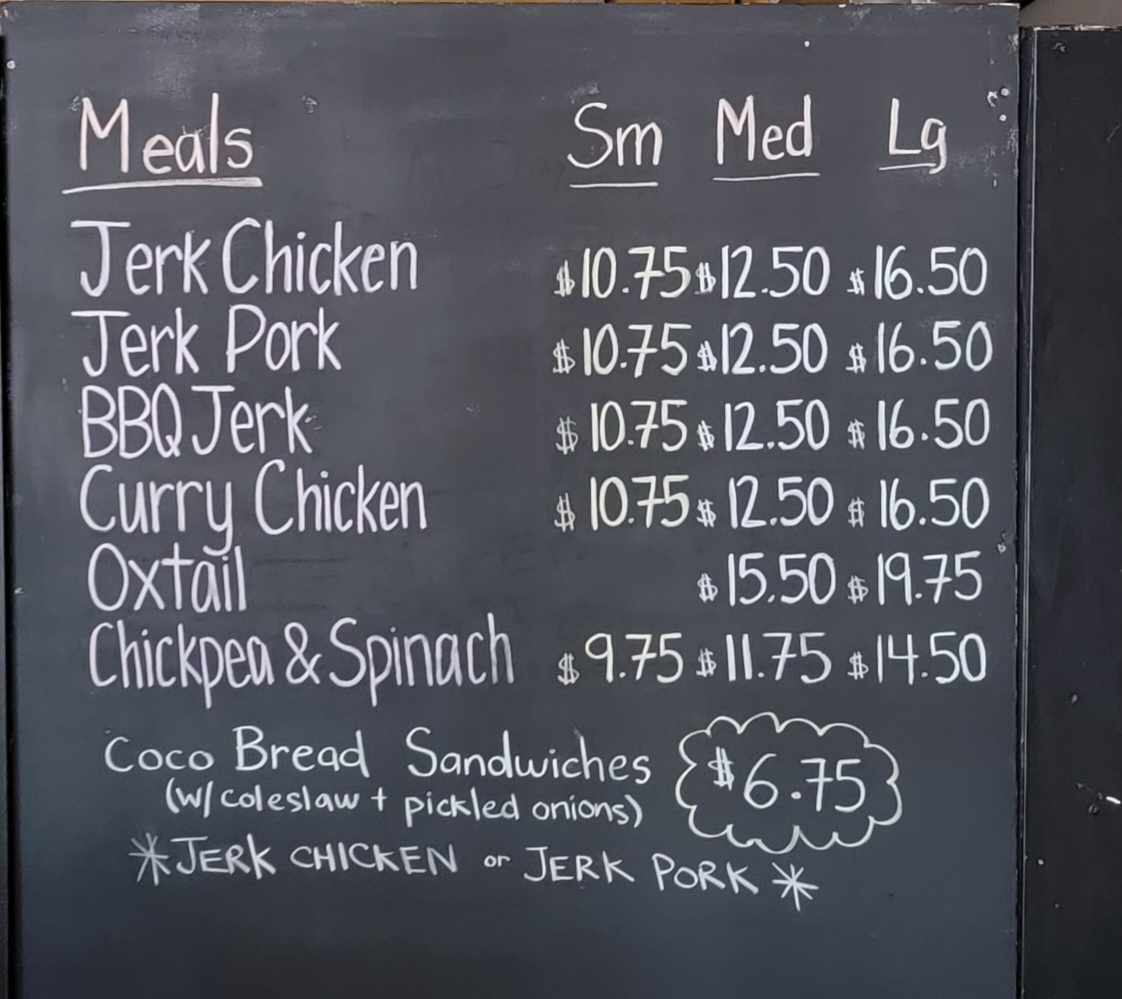 Meals Sm Med Lg
Jerk Chicken $10.75 $12.50 $16.50
Jerk Pork $10.75 $12.50 $16.50
BBQ Jerk $10.75 $12.50 $16.50
Curry Chicken $10.75 $12.50 $16.50
Oxtail $15.50 $19.75
Chickpea & Spinach $9.75 $11.75 $14.50
Coco Bread Sandwiches $6.75
(w/ coleslaw + pickled onions)
*JERK CHICKEN or JERK PORK*